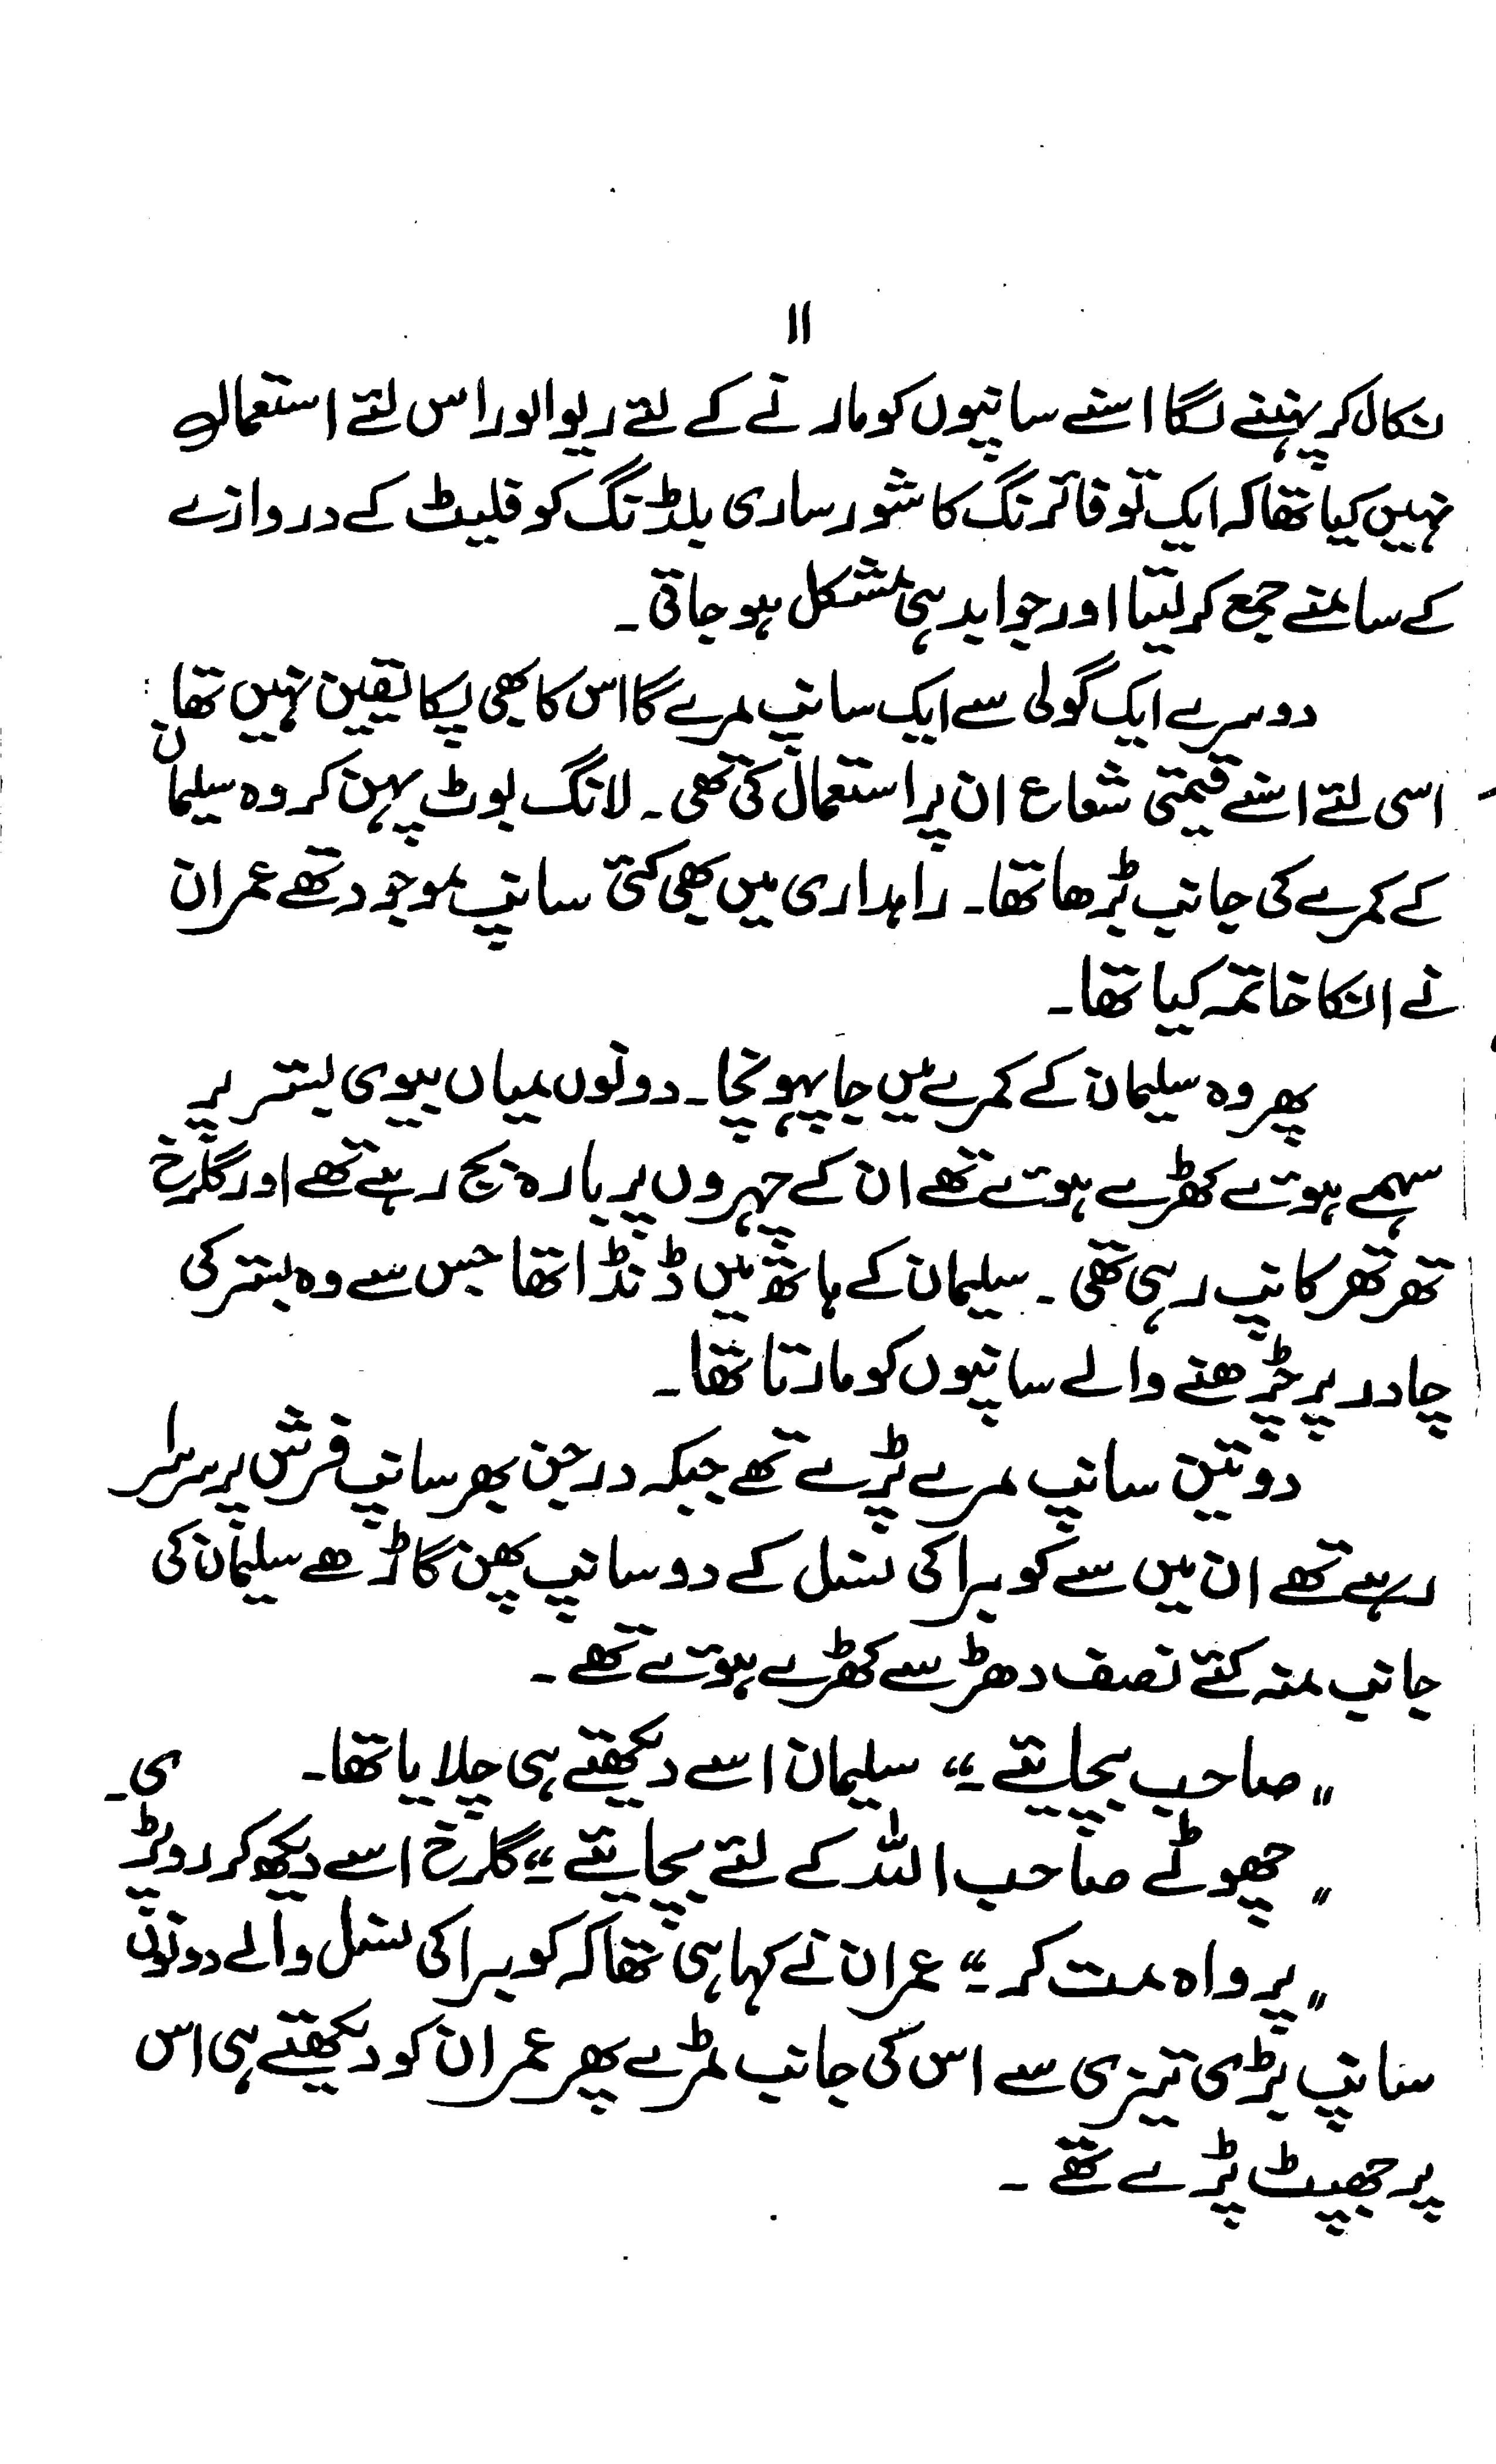 ۱۱
نکال کر پہننے لگا اسنے سانپوں کو مارنے کے لئے ریوالور اس لئے استعمال
نہیں کیا تھا کہ ایک تو فائرنگ کا شور ساری بلڈنگ کو فلیٹ کے دروازے
کے سامنے جمع کر لیتا اور جوابدہی مشکل ہو جاتی ۔
دوسرے ایک گولی سے ایک سانپ مرے گا اس کا بھی پکا یقین نہیں تھا
اسی لئے اسنے قیمتی شعاع ان پر استعمال کی تھی ۔ لانگ بوٹ پہن کر وہ سلیمان
کے کمرے کی جانب بڑھا تھا ۔ راہداری میں بھی کئی سانپ موجود تھے عمران
نے انکا خاتمہ کیا تھا ۔
پھر وہ سلیمان کے کمرے میں جا پہونچا ۔ دونوں میاں بیوی بستر پر
سہمے ہوئے کھڑے ہوئے تھے ان کے چہروں پر بارہ بج رہے تھے اور گلرخ
تھر تھر کانپ رہی تھی ۔ سلیمان کے ہاتھ میں ڈنڈا تھا جس سے وہ بستر کی
چادر پر چڑھنے والے سانپوں کو مارتا تھا ۔
دو تین سانپ مرے پڑے تھے جبکہ درجن بھر سانپ فرش پر سرسرا
رہے تھے ان میں سے کوبرا کی نسل کے دو سانپ پھن گاڑھے سلیمان کی
جانب منہ کئے نصف دھڑ سے کھڑے ہوئے تھے ۔
" صاحب بچایئے ۔" سلیمان اسے دیکھتے ہی چلایا تھا ۔
" چھوٹے صاحب اللہ کے لئے بچایئے ۔" گلرخ اسے دیکھ کر رو پڑی ۔
" پرواہ مت کر ۔" عمران نے کہا ہی تھا کہ کوبرا کی نسل والے دونوں
سانپ بڑی تیزی سے اس کی جانب مڑے پھر عمران کو دیکھتے ہی اس
پر جھپٹ پڑے تھے ۔